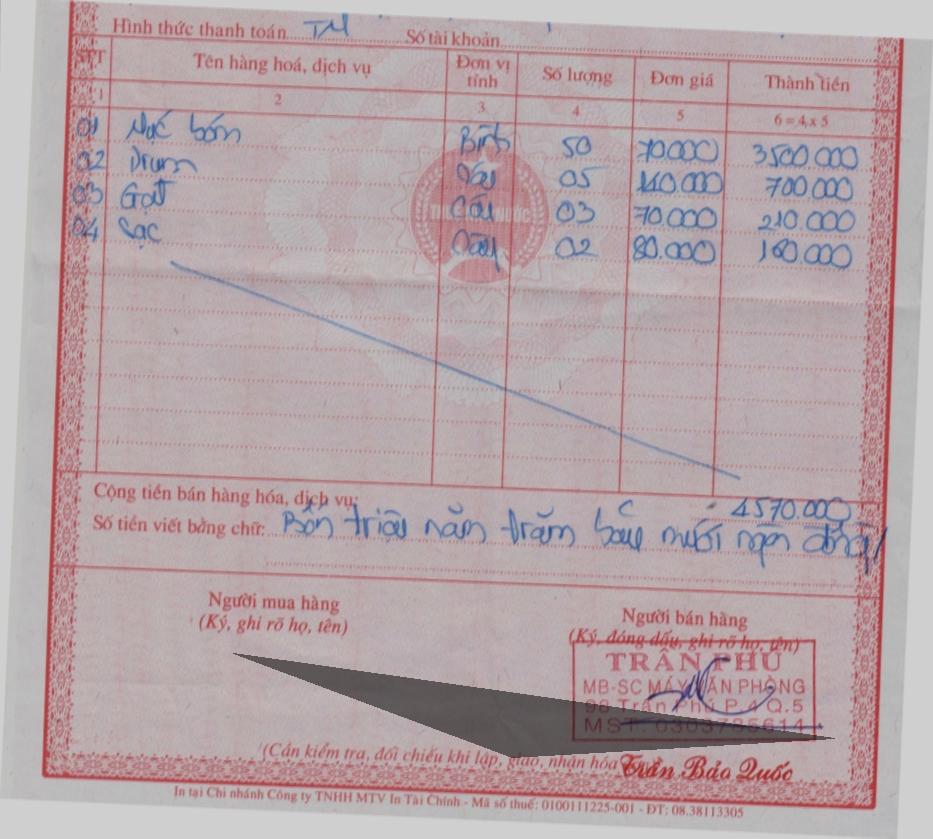 Hình thức thanh toán TM Số tài khoản
STT Tên hàng hoá, dịch vụ Đơn vị tính Số lượng Đơn giá Thành tiền
1 2 3 4 5 6 = 4 x 5
01 Mực bơm Bình 50 70.000 3500.000
02 Drum 05 140.000 700.000
03 Gạt Cái 03 70.000 210.000
04 Sạc Cây 02 80.000 160.000
Cộng tiền bán hàng hóa, dịch vụ: 4570.000
Số tiền viết bằng chữ: Bốn triệu năm trăm bảy mươi ngàn đồng
Người mua hàng Người bán hàng
(Ký, ghi rõ họ, tên) (Ký, đóng dấu, ghi rõ họ, tên)
TRẦN PHÚ
MB-SC MÁY VĂN PHÒNG
98 Trần Phú P.4 Q.5
MST: 0303785614
(Cần kiểm tra, đối chiếu khi lập, giao, nhận hóa
Trần Bảo Quốc
In tại Chi nhánh Công ty TNHH MTV In Tài Chính - Mã số thuế: 0100111225-001 - ĐT: 08.38113305